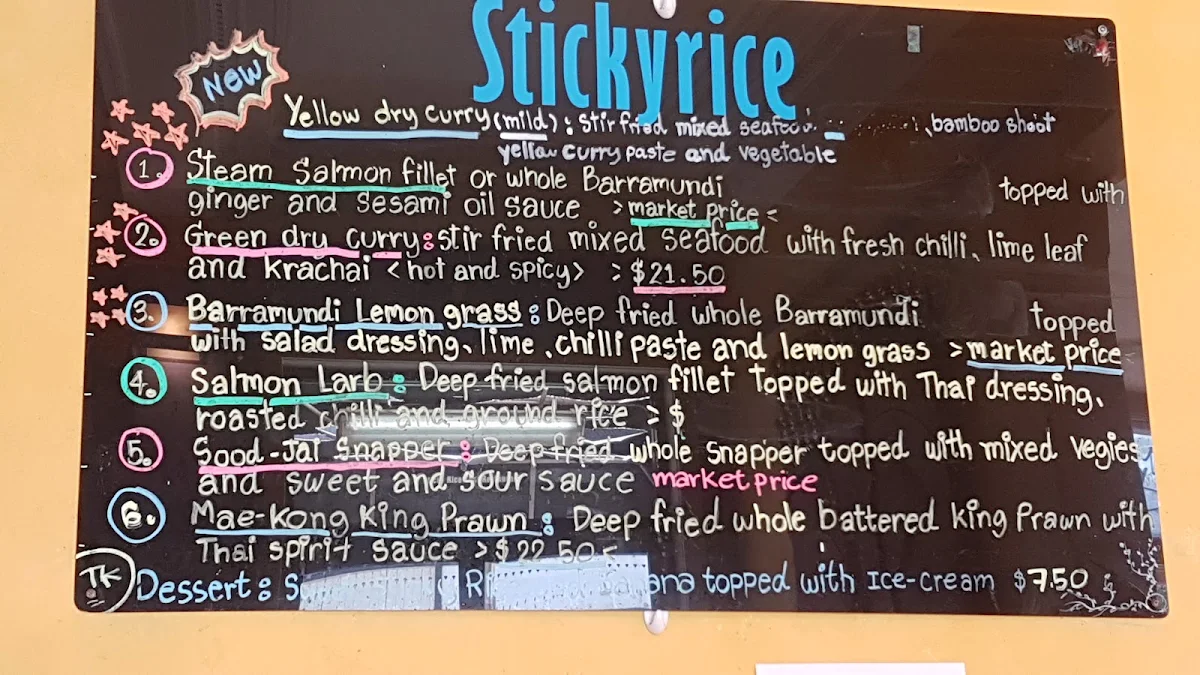 Stickyrice
New
Yellow dry curry (mild) : stir fried mixed seafood , bamboo shoot
yellow curry paste and vegetable
1. Steam Salmon fillet or whole Barramundi topped with
ginger and Sesami oil sauce > market price <
2. Green dry curry : stir fried mixed seafood with fresh chilli, lime leaf
and krachai <hot and spicy> > $21.50
3. Barramundi Lemon grass : Deep fried whole Barramundi topped
with salad dressing, lime, chilli paste and lemon grass > market price
4. Salmon Larb : Deep fried salmon fillet topped with Thai dressing,
roasted chilli and ground rice > $
5. Sood-Jai Snapper : Deep fried whole snapper topped with mixed vegies
and sweet and sour sauce market price
6. Mae-Kong King Prawn : Deep fried whole battered king Prawn with
Thai spirit sauce > $22.50 <
TK
Dessert : topped with Ice-cream $7.50